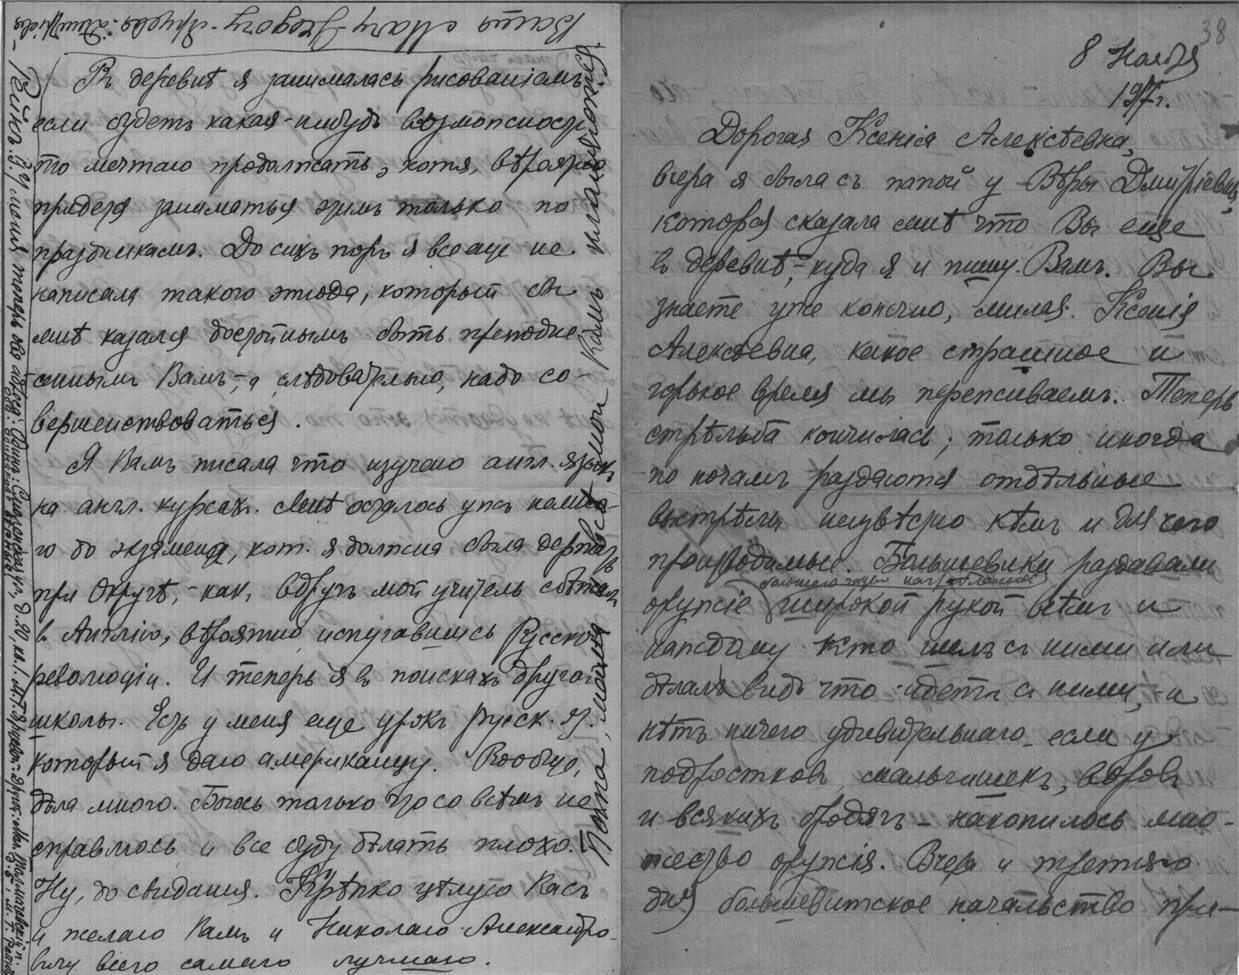 38
8 Ноября
1917г.
Дорогая Ксенія Алексѣевна,
вчера я была съ папой у Вѣры Дмитріевны,
которая сказала мнѣ что Вы еще
въ деревнѣ, – куда я и пишу Вамъ. Вы
знаете уже конечно, милая Ксенія
Алексѣевна, какое страшное и
горькое время мы переживаемъ. Теперь
стрѣльба кончилась; только иногда
по ночамъ раздаются отдѣльные
выстрѣлы неизвѣстно кѣмъ и для чего
производимые. Большевики раздавали
большею частью награбленное
оружіе широкой рукой всѣмъ и
каждому кто шелъ съ ними или
дѣлалъ видъ что идетъ съ ними, и
нѣтъ ничего удивительнаго если у
подростковъ, мальчишекъ, воровъ
и всякихъ бродягъ – накопилось мно-
жество оружія. Вчера и третьяго
дня большевитское начальство при-
Въ деревнѣ я занималась рисованіемъ,
если будетъ какая-нибудь возможность,
то мечтаю продолжать, хотя, вѣроятно
придется заниматься этимъ только по
праздникамъ. До сихъ поръ я все еще не
написала такого этюда, который бы
мнѣ казался достойнымъ быть преподне-
сеннымъ Вамъ, – а слѣдовательно, надо со-
вершенствоваться.
Я Вамъ писала что изучаю англ. языкъ
на англ. курсахъ. Мнѣ осталось уже немно-
го до экзамена, кот. я должна была держать
при Округѣ, – какъ вдругъ мой учитель сбѣжалъ
въ Англію, вѣроятно испугавшись Русской
революціи. И теперь я въ поискахъ другой
школы. Есть у меня еще урокъ русск. яз.
который я даю американцу. Вообще,
дѣла много. Боюсь только что со всѣмъ не
справлюсь и все буду дѣлать плохо.
Ну, до свиданія. Крѣпко цѣлую Васъ
и желаю Вамъ и Николаю Александро-
вичу всего самаго лучшаго.
Папа, мама и всѣ мои Вамъ кланяются.